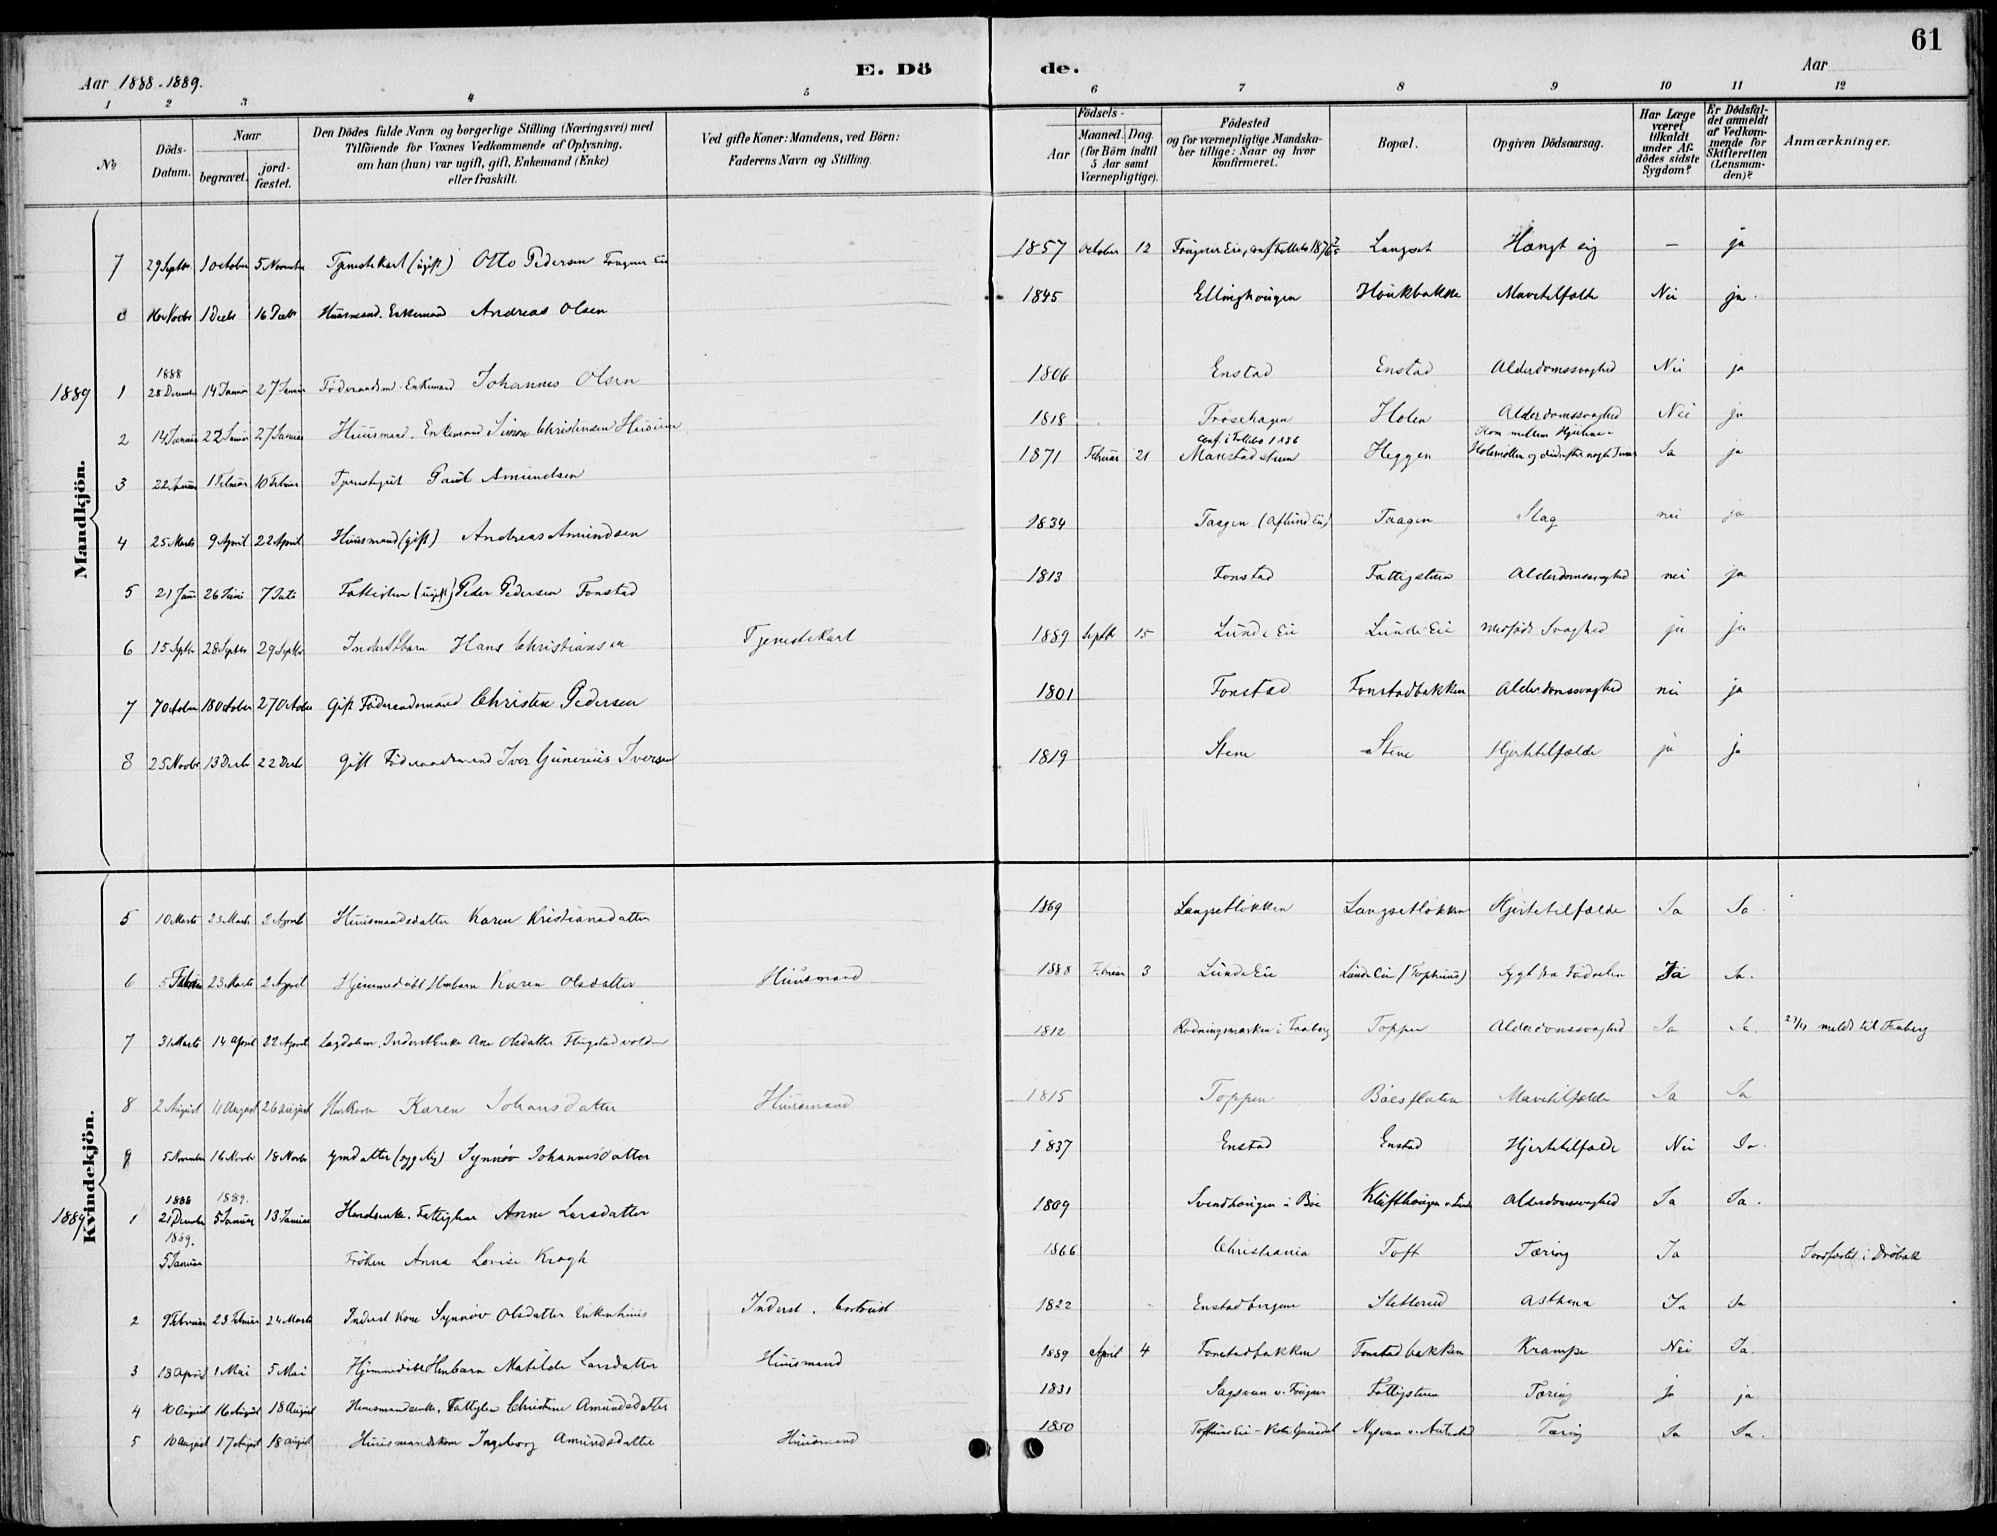 61
Aar 1888-1889.
E. Dö
de.
Aar
1 2 3 4 5 6 7 8 9 10 11 12
No
Döds-Datum.
Naar
begravet.
jord-fæstet.
Den Dödes fulde Navn og borgerlige Stilling (Næringsvei) med
Tilföiende for Voxnes Vedkommende af Oplysning.
om han (hun) var ugift, gift, Enkemand (Enke)
eller fraskilt.
Ved gifte Koner: Mandens, ved Börn:
Faderens Navn og Stilling.
Födsels-
Aar
Maaned. Dag.
(for Börn indtil
5 Aar samt
Værnepligtige).
Födested
og for værnepligtige Mandska-
ber tillige: Naar og hvor
konfirmeret.
Bopæl.
Opgiven Dödsaarsag.
Har Læge
været
tilkaldt
under Af-
dödes sidste
Sygdom?
Er Dödsfal-
det anmeldt
af Vedkom-
mende for
Skifteretten
(Lensman-
den)?
Anmærkninger.
Mandkjön.
7 29 Septbr 1 October 5 November Tjenestekarl (ugift) Otto Pedersen Fougner Eie 1857 October 12 Langset Hængt sig — ja
8 1 Decbr 16 Decbr Huusmand. Enkemand Andreas Olsen 1845 Ellinghougen Houkbakken Mavetilfælde Nei ja.
1889
1 1888 28 December 14 Januar 27 Januar Föderaadsm. Enkemand Johannes Olsen 1806 Enstad Enstad Alderdomssvaghed Nei ja
2 14 Januar 22 Januar 27 Januar Huusmand. Enkemand Simon Christensen 1818 Trosehagen Holen Alderdomssvaghed Nei ja
3 22 Januar 1 Februar 10 Februar Tjenestegut Paul Amundsen 1871 Februar 21 Heggen Kom mellem Hjulene i Ja ja
4 25 Marts 9 April 22 April Huusmand (gift) Andreas Amundsen 1834 Taagen Taagen Slag nei ja
5 21 Juni 26 Juni 7 Juli Fattiglem (ugift) Peder Pedersen Fonstad 1813 Fonstad Fattigstuen Alderdomssvaghed nei ja
6 15 Septbr 28 Septbr 29 Septbr Inderstbarn Hans Christiansen Tjenestekarl 1889 Septbr 15 Lunde Eie Lunde Eie Medfödt Svaghed ja ja
7 7 October 18 October 27 October Gift Föderaadsmand Christen Pedersen 1801 Fonstad Fonstadbakken Alderdomssvaghed nei ja
8 25 Novbr 13 Decbr 22 Decbr Gift Föderaadsmand Iver Gunerius Iversen 1819 Stene Stene Hjertetilfælde ja ja
Kvindekjön.
5 10 Marts 23 Marts 2 April Huusmandsdatter Karen Kristiansdatter 1869 Langsetløkken Langsetløkken Hjertetilfælde Ja Ja.
6 5 Februar 23 Marts 2 April Hjemmedöbt Karen Olsdatter Huusmand 1888 Februar 3 Lunde Eie Lunde Eie Sygt fra Födselen Ja Ja.
7 31 Marts 14 April 22 April Inderst Enke Ane Olsdatter 1812 Toppen Alderdomssvaghed Ja Ja. meldt til Faaberg
8 2 August 11 August 26 August Karen Johansdatter Huusmand 1815 Toppen Mavetilfælde Ja Ja
9 5 November 16 Novbr 18 Novbr Synnöv Johannesdatter 1837 Enstad Enstad Hjertetilfælde Nei Ja.
1889
1 1888 21 December 1889. 5 Januar 13 Januar Anne Larsdatter 1809 Svendhougen i Böe Alderdomssvaghed Ja Ja.
1889. 5 Januar Fröken Anna Lovise Kragh 1866 Christiania Toft Tæring Ja Jordfæstet i Dröbak
2 9 Februar 23 Februar 24 Marts Inderst Kone Synnöv Olsdatter Inderst. 1822 Enstadbergene Sletterud Asthena Ja Ja
3 13 April 1 Mai 5 Mai Hjemmedöbt Matilde Larsdatter Huusmand 1889 April 4 Fonstadbakken Fonstadbakken Krampe Nei Ja.
4 10 August 16 August 18 August Huusmandsenke, Fattiglem Christine Amundsdatter 1831 Fattigstuen Tæring ja ja
5 10 August 17 August 18 August Huusmandskone Ingeborg Amundsdatter Huusmand 1850 Tæring Ja Ja.